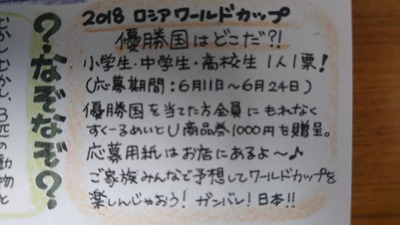 2018 ロシアワールドカップ
優勝国はどこだ?!
小学生・中学生・高校生 1人1票!
(応募期間:6月11日〜6月24日)
優勝国を当てた方全員にもれなく
すくーるめいとU商品券1000円を贈呈。
応募用紙はお店にあるよ〜♪
ご家族みんなで予想してワールドカップを
楽しんじゃおう!ガンバレ!日本!!
?なぞなぞ?
むかし、3匹の動物と